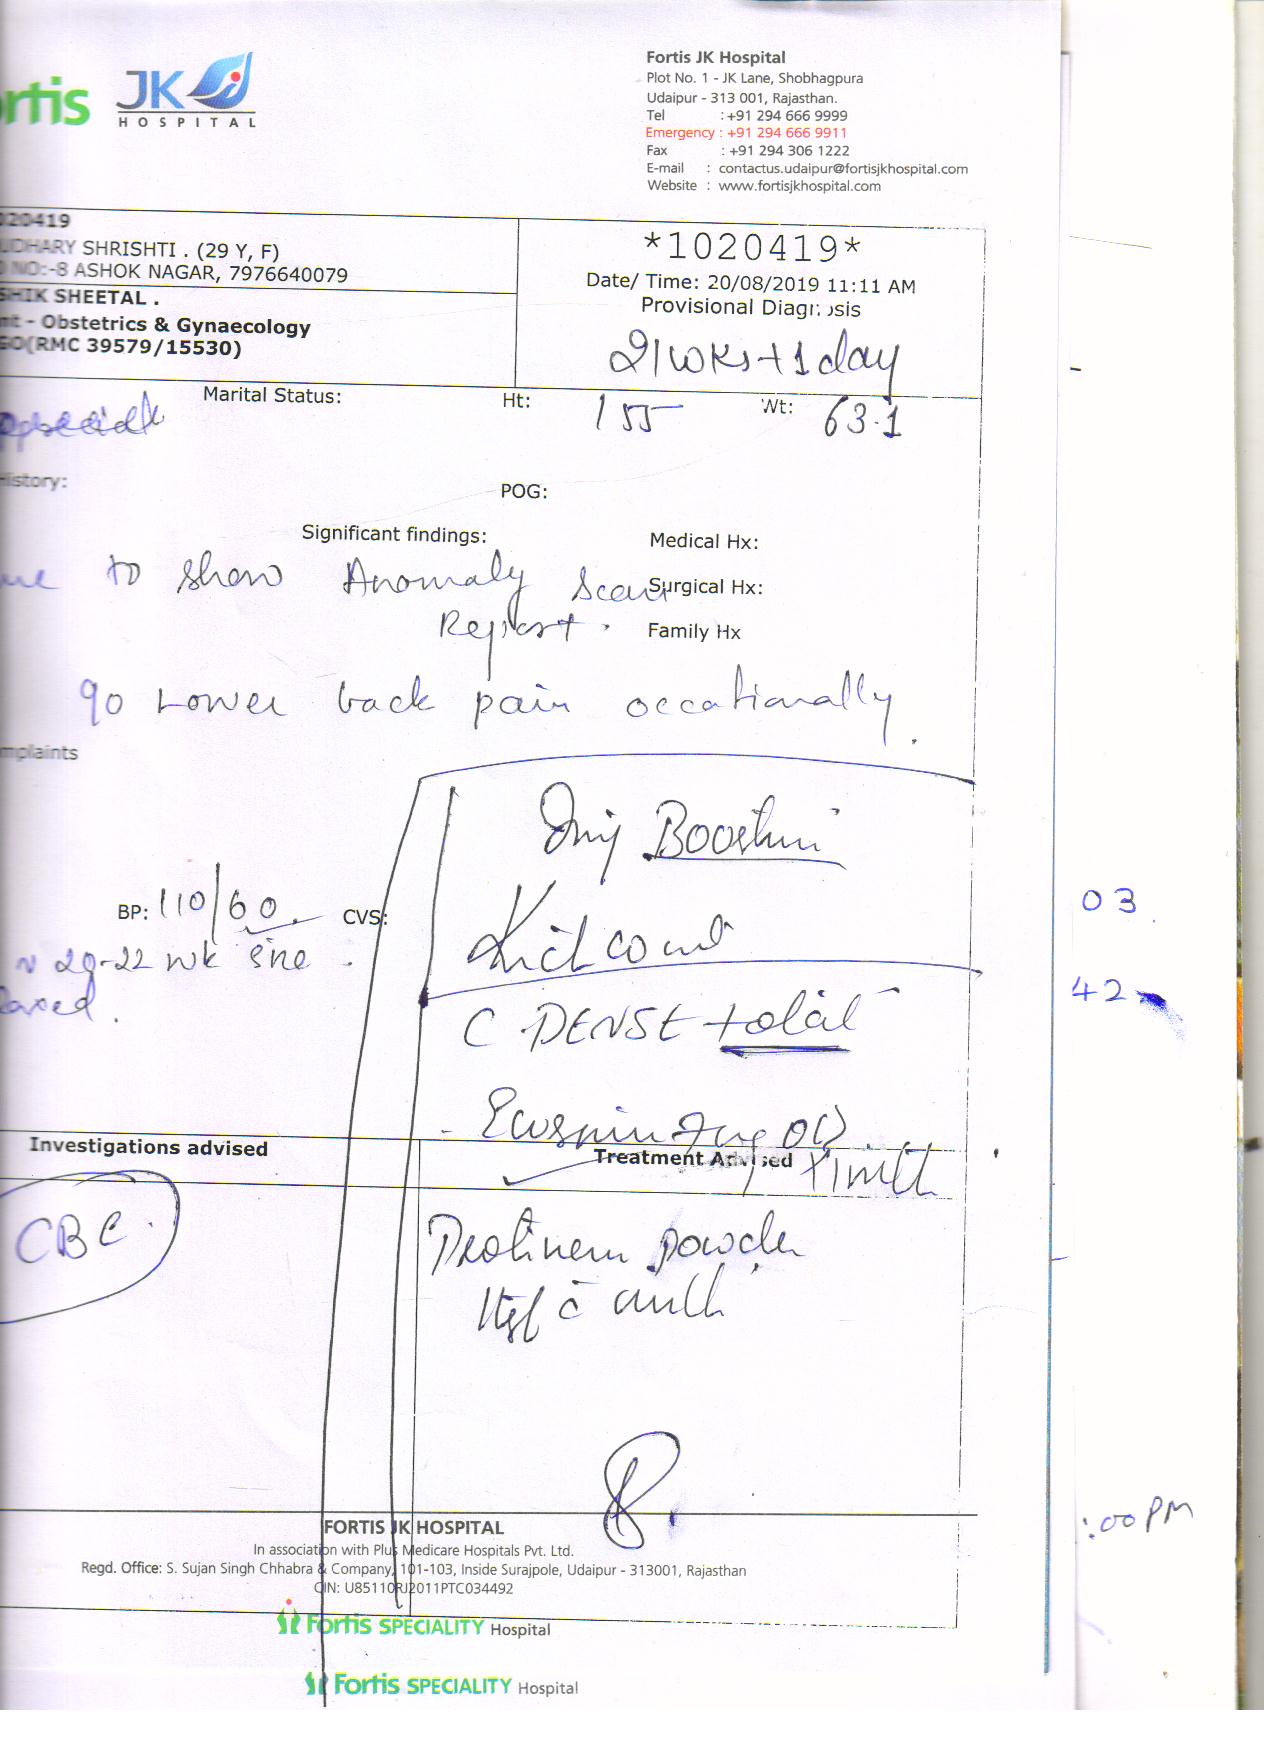 rtis JK
HOSPITAL
Fortis JK Hospital
Plot No. 1 - JK Lane, Shobhagpura
Udaipur - 313 001, Rajasthan.
Tel : +91 294 666 9999
Emergency : +91 294 666 9911
Fax : +91 294 306 1222
E-mail : contactus.udaipur@fortisjkhospital.com
Website : www.fortisjkhospital.com
020419
UDHARY SHRISHTI . (29 Y, F)
NO:-8 ASHOK NAGAR, 7976640079
SHIK SHEETAL .
nt - Obstetrics & Gynaecology
GO(RMC 39579/15530)
*1020419*
Date/ Time: 20/08/2019 11:11 AM
Provisional Diagnosis
21 wks + 1 day
Marital Status: Ht: 155 Wt: 63.1
History:
POG:
Significant findings: Medical Hx:
to show Anomaly Scan Surgical Hx:
Report. Family Hx
Lower back pain occationally.
mplaints
Inj
BP: 110/60 CVS:
Kick count
20-22 wk
C DENSE total
Ecospin OD
Investigations advised Treatment Advised
CBC
powder
c milk
FORTIS JK HOSPITAL
In association with Plus Medicare Hospitals Pvt. Ltd.
Regd. Office: S. Sujan Singh Chhabra & Company, 101-103, Inside Surajpole, Udaipur - 313001, Rajasthan
CIN: U85110RJ2011PTC034492
Fortis SPECIALITY Hospital
Fortis SPECIALITY Hospital
03
42
:00 PM